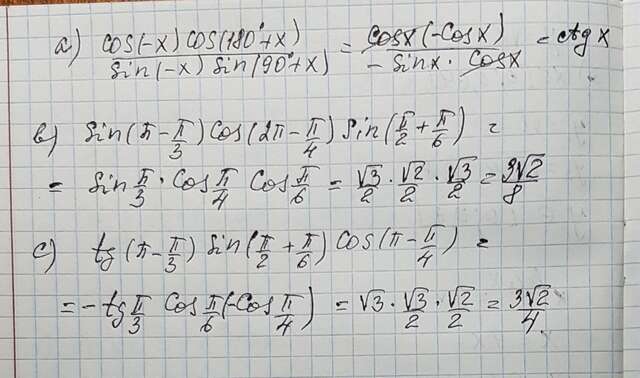 a) cos(-x) cos(180°+x) / sin(-x) sin(90°+x) = cosx (-cosx) / -sinx · cosx = ctg x
b) sin(π-π/3) cos(2π-π/4) sin(π/2+π/6) =
= sin π/3 · cos π/4 cos π/6 = √3/2 · √2/2 · √3/2 = 3√2/8
c) tg(π-π/3) sin(π/2+π/6) cos(π-π/4) =
= -tg π/3 cos π/6 (-cos π/4) = √3 · √3/2 · √2/2 = 3√2/4.